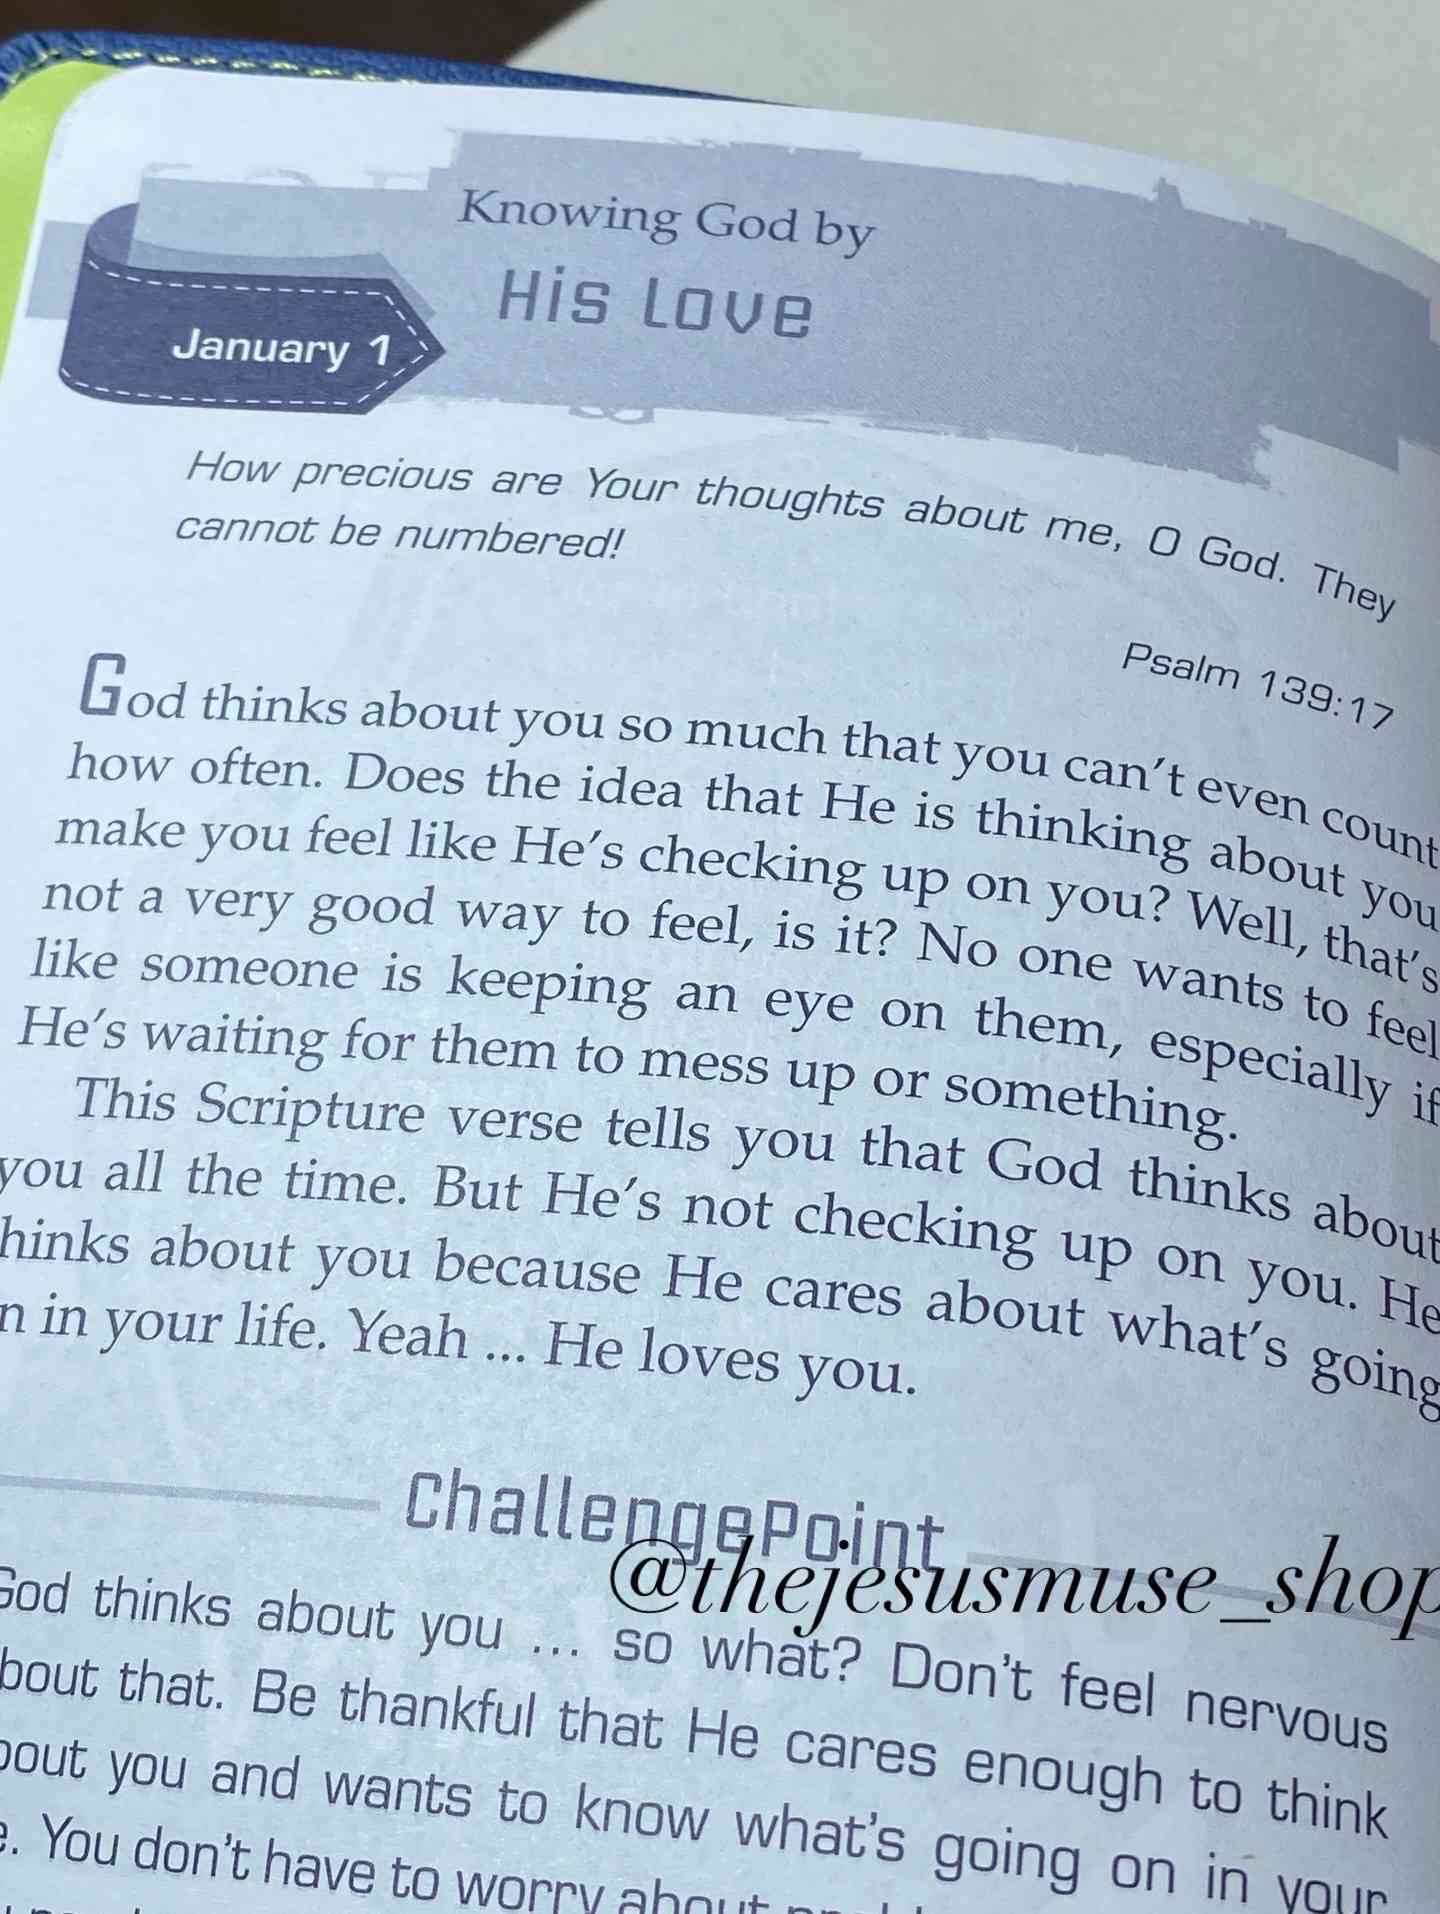 Knowing God by
His Love
January 1
How precious are Your thoughts about me, O God. They
cannot be numbered!
Psalm 139:17
God thinks about you so much that you can't even count
how often. Does the idea that He is thinking about you
make you feel like He's checking up on you? Well, that's
not a very good way to feel, is it? No one wants to feel
like someone is keeping an eye on them, especially if
He's waiting for them to mess up or something.
This Scripture verse tells you that God thinks about
you all the time. But He's not checking up on you. He
hinks about you because He cares about what's going
n in your life. Yeah ... He loves you.
ChallengePoint
@thejesusmuse_shop
God thinks about you ... so what? Don't feel nervous
bout that. Be thankful that He cares enough to think
bout you and wants to know what's going on in your
e. You don't have to worry about